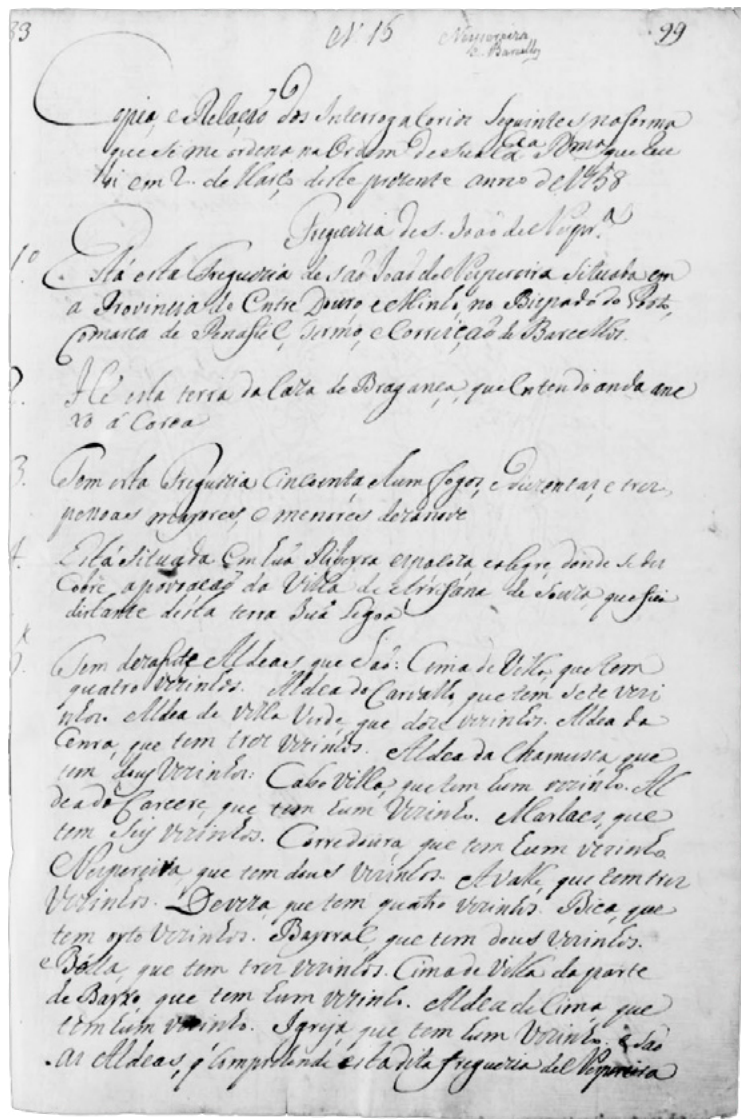 33 N. 15 Nespereira 99
B. Barcellos
Copia, e Relação dos Interrogatorios Seguintes, na forma
que se me ordena na Ordem de Sua Exa. Rma. que rece
bi em 2. de Março deste prezente anno de 1758
Freguezia de S. João de Nespr.a
1.o Está esta Freguezia de São João de Nespereira situada em
a Provincia de Entre Douro, e Minho, no Bispado do Porto,
Comarca de Penafiel, Termo, e Correição de Barcellos.
2. Hé esta terra da Caza de Bragança, que Entendo anda ane
xo á Coroa
3. Tem esta Freguezia Cincoenta e hum fogos, e duzentas, e tres,
pessoas mayores, e menores dezanove
4. Está situada Em huã Ribeyra espaçoza e alegre, donde se des
Cobre a povoação da Villa de Arrifana de Souza, que fica
distante desta terra huã legoa
5. Tem dezasete Aldeas, que São: Cima de Villa, que tem
quatro vezinhos. Aldea do Carvalho, que tem sete vezi
nhos. Aldea de Villa Verde, que doze vezinhos. Aldea da
que tem tres Vezinhos. Aldea da Chamusca, que
tem douz Vezinhos: Cabo Villa, que tem hum vezinho. Al
dea do Carcere, que tem hum Vezinho. Marlaes, que
tem Seis Vezinhos. Corredoura, que tem hum vezinho
Nespereira, que tem dous vezinhos. que tem tres
Vezinhos. Deveza, que tem quatro vezinhos. Bica, que
tem oyto Vezinhos. que tem dous Vezinhos.
e que tem tres vezinhos. Cima de Villa da parte
de Bayxo que tem hum vezinho. Aldea de Cima que
tem hum vezinho. Igreja, que tem hum Vezinho. e São
as Aldeas, q Comprehende esta dita freguezia de Nespereira